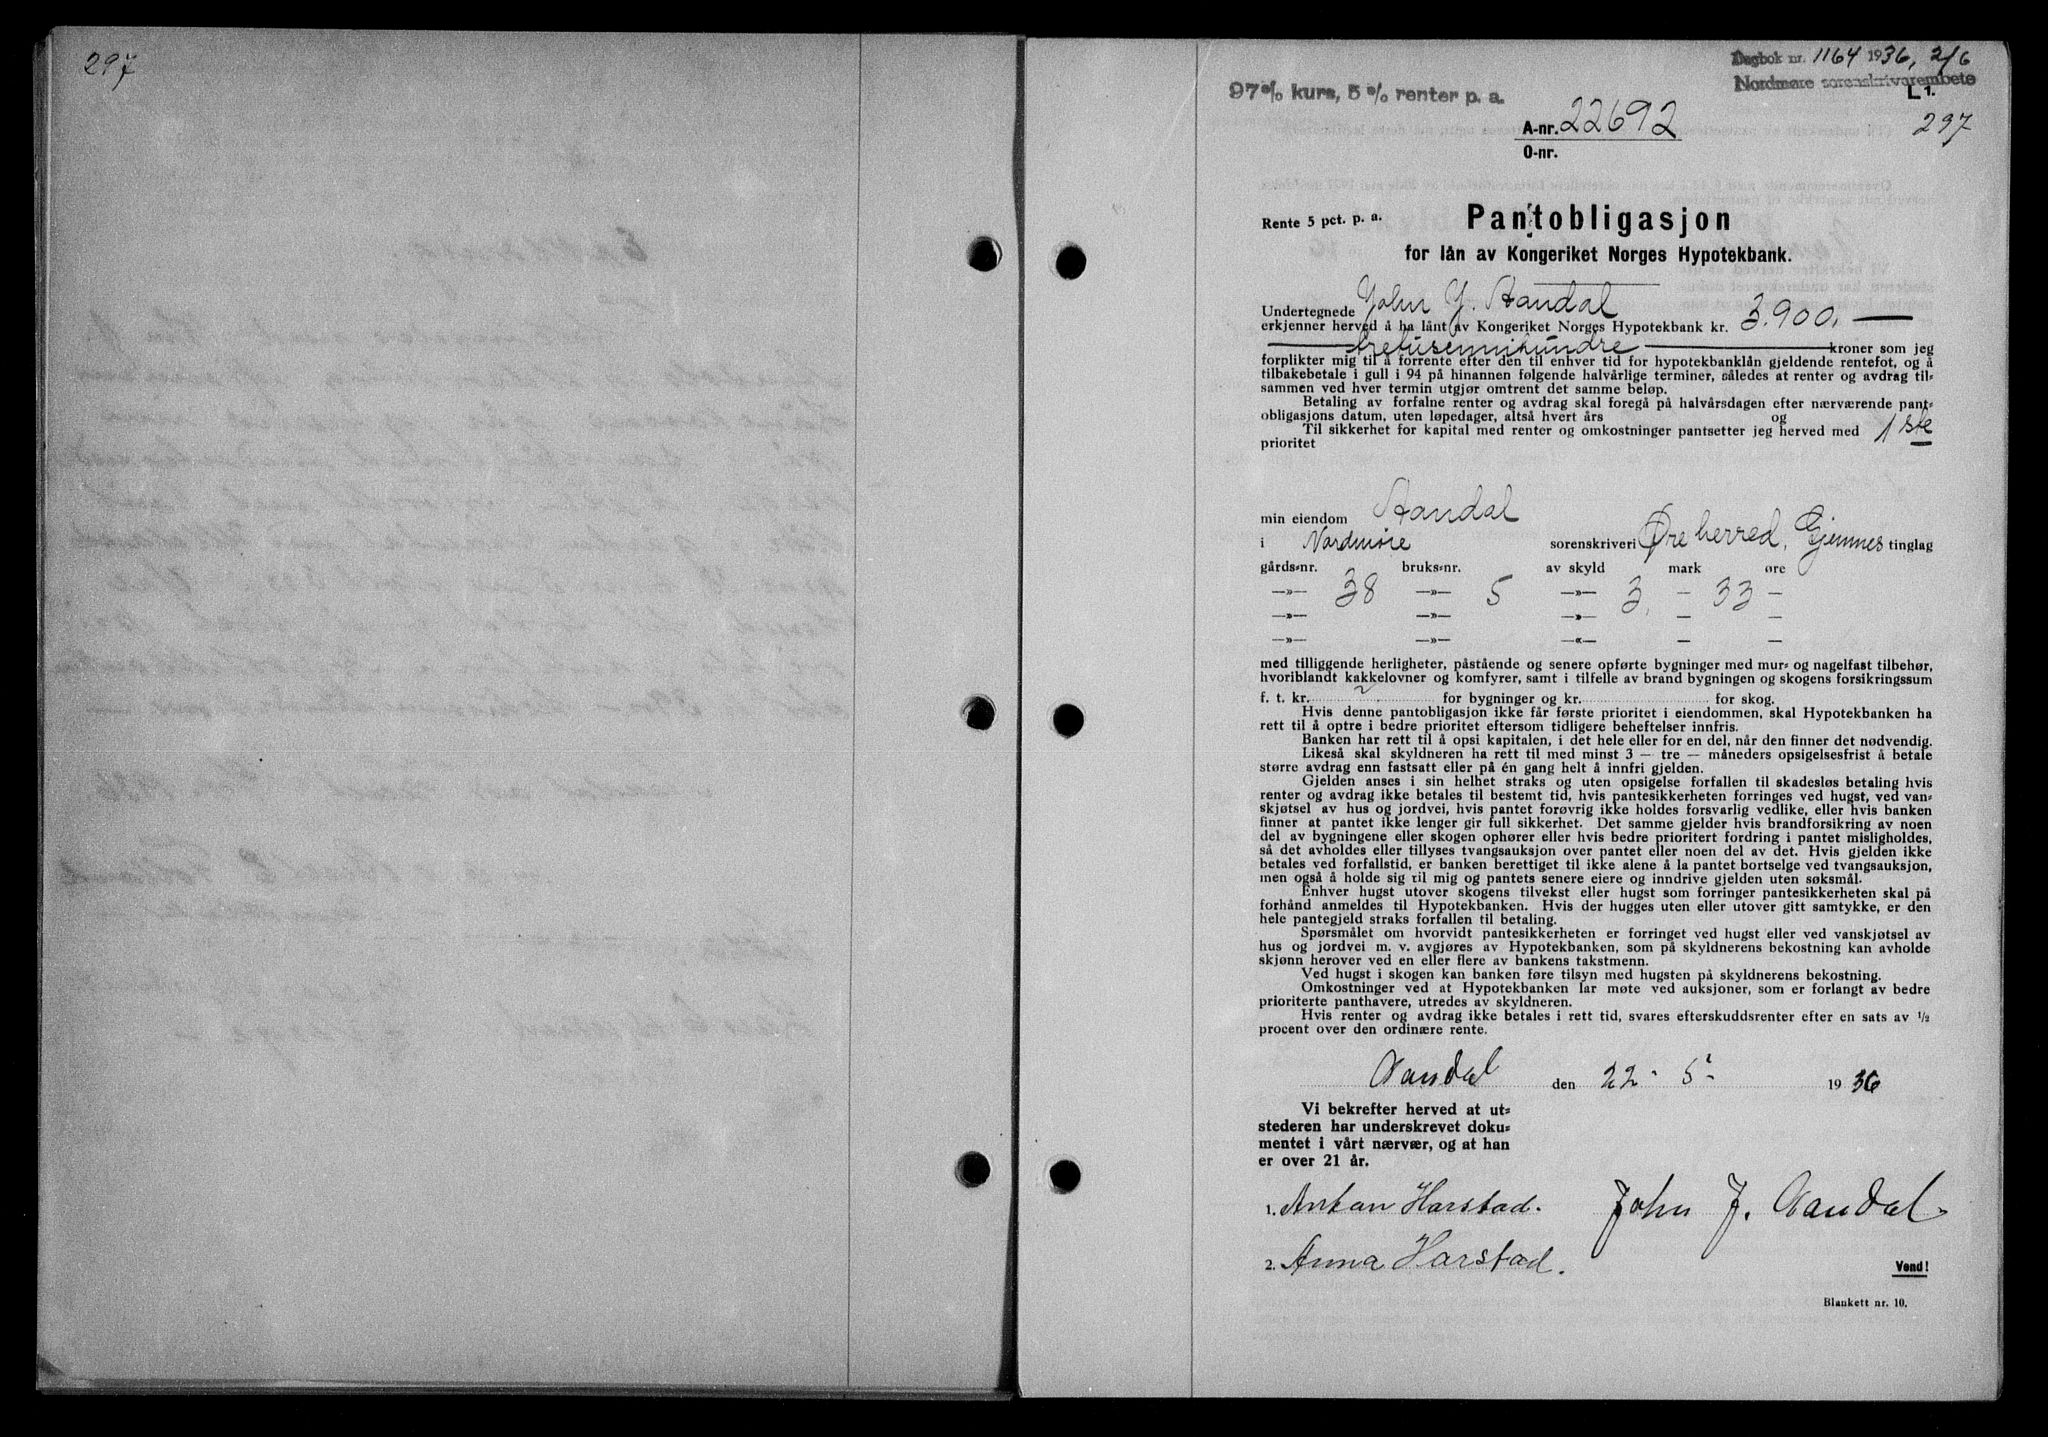 297
Dagbok nr. 1164 1936, 2/6
Nordmøre sorenskrivarembete
97 % kurs, 5 % renter p. a.
L 1.
A-nr. 22692
297
O-nr.
Rente 5 pct. p. a.
Pantobligasjon
for lån av Kongeriket Norges Hypotekbank.
Undertegnede John J. Aandal
erkjenner herved å ha lånt av Kongeriket Norges Hypotekbank kr. 3.900,—
— tretusennihundre — kroner som jeg
forplikter mig til å forrente efter den til enhver tid for hypotekbanklån gjeldende rentefot, og å
tilbakebetale i gull i 94 på hinannen følgende halvårlige terminer, således at renter og avdrag til=
sammen ved hver termin utgjør omtrent det samme beløp.
Betaling av forfalne renter og avdrag skal foregå på halvårsdagen efter nærværende pant=
obligasjons datum, uten løpedager, altså hvert års og
Til sikkerhet for kapital med renter og omkostninger pantsetter jeg herved med 1ste
prioritet
min eiendom Aandal
i Nordmøre sorenskriveri Øre herred, Gjemnes tinglag
gårds=nr. bruks=nr. av skyld mark øre
—»— 38 —»— 5 —»— 3, — 33 —
—»— —»— —»— — —
—»— —»— —«— — —
med tilliggende herligheter, påstående og senere opførte bygninger med mur= og nagelfast tilbehør,
hvoriblandt kakkelovner og komfyrer, samt i tilfelle av brand bygningen og skogens forsikringssum
f. t. kr. for bygninger og kr. for skog.
Hvis denne pantobligasjon ikke får første prioritet i eiendommen, skal Hypotekbanken ha
rett til å optre i bedre prioritet eftersom tidligere beheftelser innfris.
Banken har rett til å opsi kapitalen, i det hele eller for en del, når den finner det nødvendig.
Likeså skal skyldneren ha rett til med minst 3 — tre — måneders opsigelsesfrist å betale
større avdrag enn fastsatt eller på én gang helt å innfri gjelden.
Gjelden anses i sin helhet straks og uten opsigelse forfallen til skadesløs betaling hvis
renter og avdrag ikke betales til bestemt tid, hvis pantesikkerheten forringes ved hugst, ved van=
skjøtsel av hus og jordvei, hvis pantet forøvrig ikke holdes forsvarlig vedlike, eller hvis banken
finner at pantet ikke lenger gir full sikkerhet. Det samme gjelder hvis brandforsikring av noen
del av bygningene eller skogen ophører eller hvis bedre prioritert fordring i pantet misligholdes,
så det avholdes eller tillyses tvangsauksjon over pantet eller noen del av det. Hvis gjelden ikke
betales ved forfallstid, er banken berettiget til ikke alene å la pantet bortselge ved tvangsauksjon,
men også å holde sig til mig og pantets senere eiere og inndrive gjelden uten søksmål.
Enhver hugst utover skogens tilvekst eller hugst som forringer pantesikkerheten skal på
forhånd anmeldes til Hypotekbanken. Hvis der hugges uten eller utover gitt samtykke, er den
hele pantegjeld straks forfallen til betaling.
Spørsmålet om hvorvidt pantesikkerheten er forringet ved hugst eller ved vanskjøtsel av
hus og jordvei m. v. avgjøres av Hypotekbanken, som på skyldnerens bekostning kan avholde
skjønn herover ved en eller flere av bankens takstmenn.
Ved hugst i skogen kan banken føre tilsyn med hugsten på skyldnerens bekostning.
Omkostninger ved at Hypotekbanken lar møte ved auksjoner, som er forlangt av bedre
prioriterte panthavere, utredes av skyldneren.
Hvis renter og avdrag ikke betales i rett tid, svares efterskuddsrenter efter en sats av ½
procent over den ordinære rente.
Aandal den 22-5- 1936
Vi bekrefter herved at ut=
stederen har underskrevet doku=
mentet i vårt nærvær, og at han
er over 21 år.
1. Antan Harstad.
John J. Aandal
2. Anna Harstad.
Vend!
Blankett nr. 10.